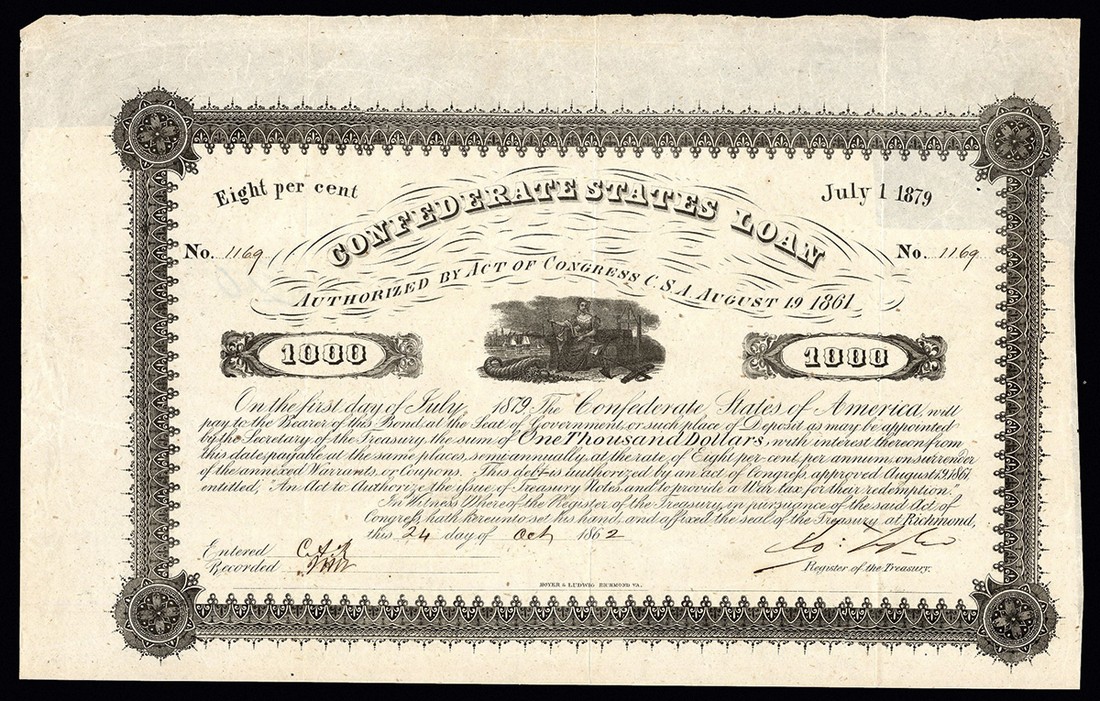 Eight per cent
July 1 1879
CONFEDERATE STATES LOAN
No. 1169
No. 1169
AUTHORIZED BY ACT OF CONGRESS C.S.A. AUGUST 19 1861
1000
1000
On the first day of July 1879, The Confederate States of America, will
pay to the Bearer of this Bond, at the Seat of Government, or such place of Deposit as may be appointed
by the Secretary of the Treasury, the sum of One Thousand Dollars, with interest thereon from
this date, payable at the same places, semi annually, at the rate of Eight per-cent, per annum, on surrender
of the annexed Warrants, or Coupons. This debt is authorized by an act of Congress, approved August 19, 1861,
entitled, "An Act to Authorize the issue of Treasury Notes and to provide a War tax for their redemption."
In Witness Whereof the Register of the Treasury, in pursuance of the said Act of
Congress, hath hereunto set his hand, and affixed the seal of the Treasury at Richmond,
this 24 day of Oct 1862
Entered
Recorded
Register of the Treasury.
HOYER & LUDWIG RICHMOND VA.